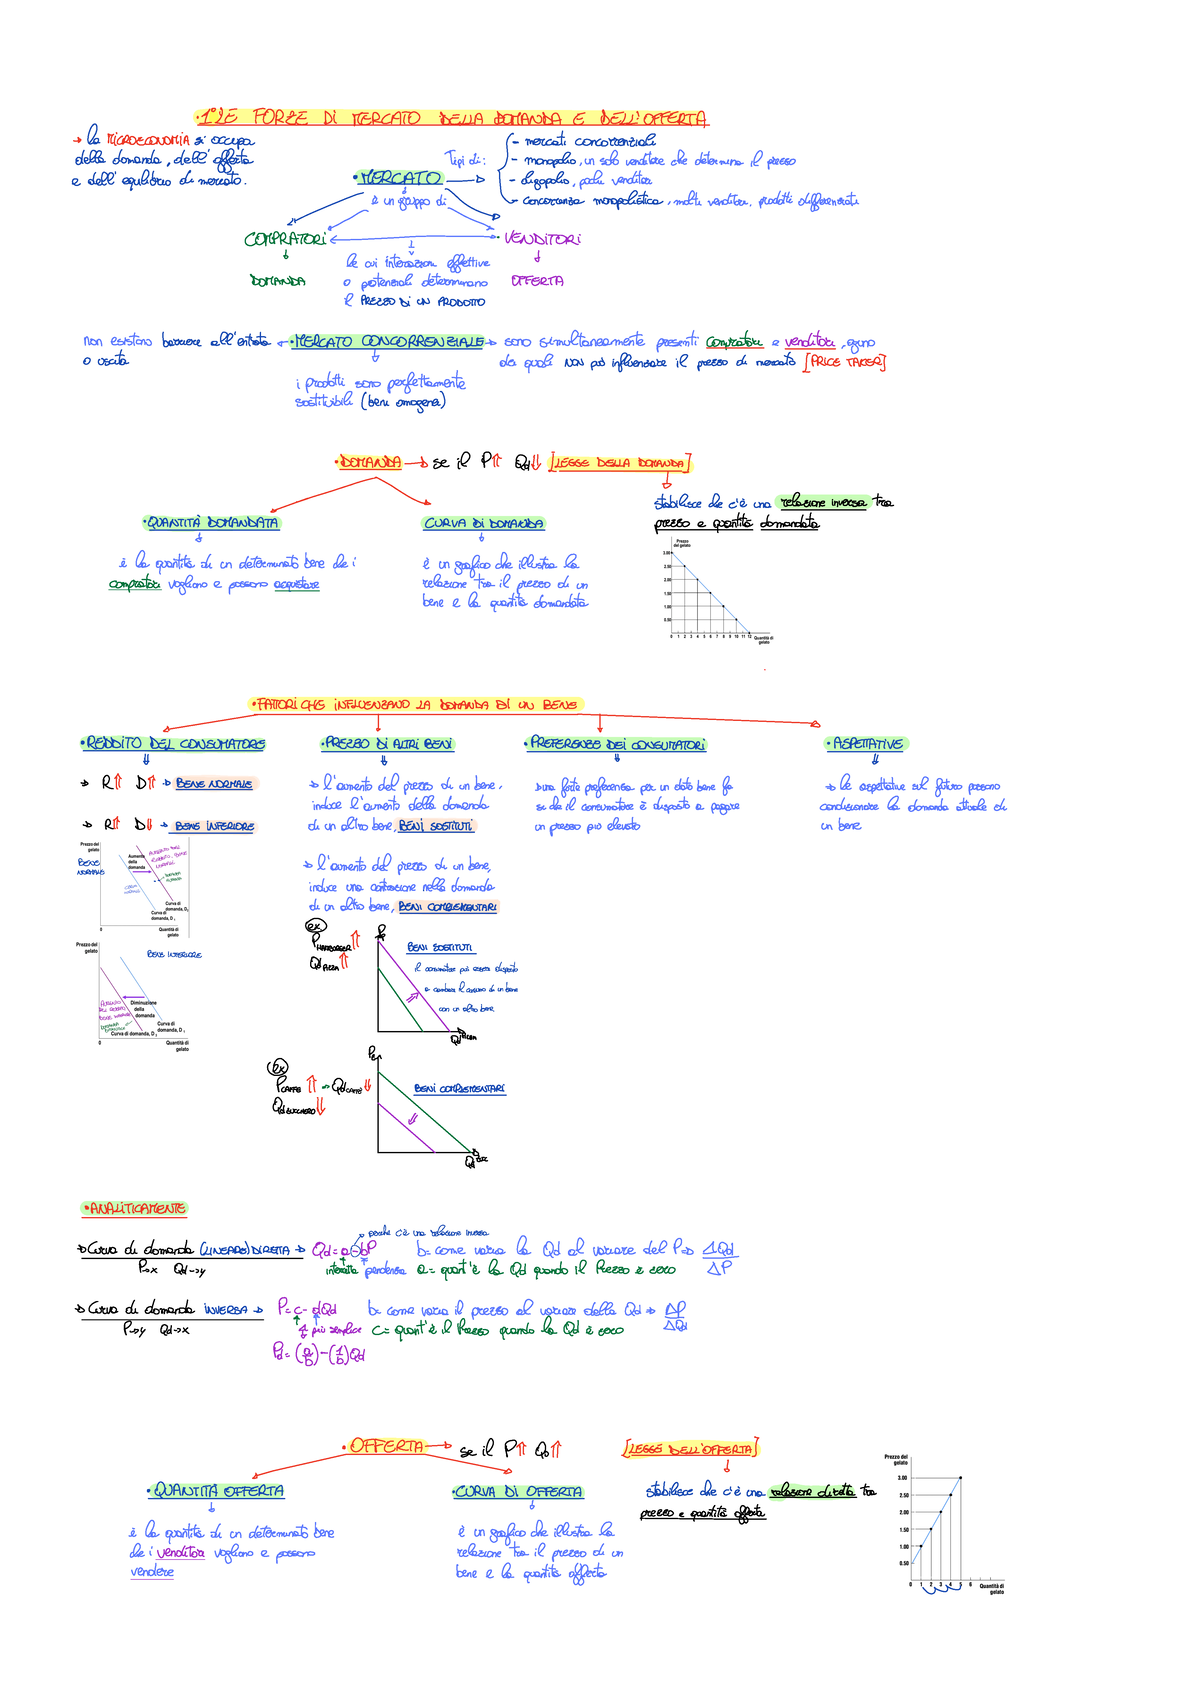 ·1°LE FORZE DI MERCATO DELLA DOMANDA E DELL'OFFERTA
→ la MICROECONOMIA si occupa
della domanda, dell'offerta
e dell'equilibrio di mercato.
Tipi di:
- mercati concorrenziali
- monopolio, un solo venditore che determina il prezzo
- oligopolio, pochi venditori
- concorrenza monopolistica, molti venditori, prodotti differenziati
·MERCATO
è un gruppo di
COMPRATORI
VENDITORI
DOMANDA
le cui interazioni effettive
o potenziali determinano
il PREZZO DI UN PRODOTTO
OFFERTA
non esistono barriere all'entrata
o uscita
·MERCATO CONCORRENZIALE → sono simultaneamente presenti compratori e venditori, ognuno
dei quali NON può influenzare il prezzo di mercato [PRICE TAKER]
i prodotti sono perfettamente
sostituibili (beni omogenei)
·DOMANDA → se il P⇑ Qd⇓ [LEGGE DELLA DOMANDA]
stabilisce che c'è una relazione inversa tra
prezzo e quantità domandata
·QUANTITÀ DOMANDATA
CURVA DI DOMANDA
è la quantità di un determinato bene che i
compratori vogliono e possono acquistare
è un grafico che illustra la
relazione tra il prezzo di un
bene e la quantità domandata
Prezzo
del gelato
3.00
2.50
2.00
1.50
1.00
0.50
0 1 2 3 4 5 6 7 8 9 10 11 12
Quantità di
gelato
·FATTORI CHE INFLUENZANO LA DOMANDA DI UN BENE
·REDDITO DEL CONSUMATORE
→ R⇑ D⇑ → BENE NORMALE
→ R⇑ D⇓ → BENE INFERIORE
·PREZZO DI ALTRI BENI
→ l'aumento del prezzo di un bene,
induce l'aumento della domanda
di un altro bene, BENI SOSTITUTI
→ l'aumento del prezzo di un bene,
induce una contrazione nella domanda
di un altro bene, BENI COMPLEMENTARI
·PREFERENZE DEI CONSUMATORI
→ una forte preferenza per un dato bene fa
sì che il consumatore è disposto a pagare
un prezzo più elevato
·ASPETTATIVE
→ le aspettative sul futuro possono
condizionare la domanda attuale di
un bene
Prezzo del
gelato
BENE
NORMALE
Aumento
della
domanda
Curva di
domanda, D₂
Curva di
domanda, D₁
0
Quantità di
gelato
Prezzo del
gelato
BENE INFERIORE
Diminuzione
della
domanda
Curva di
domanda, D₁
Curva di domanda, D₂
0
Quantità di
gelato
ex
P HAMBURGER ⇑
Qd PIZZA ⇑
BENI SOSTITUTI
il consumatore può essere disposto
a cambiare il consumo di un bene
con un altro bene
ex
P CAFFÈ ⇑ → Qd CAFFÈ ⇓
Qd ZUCCHERO ⇓
BENI COMPLEMENTARI
·ANALITICAMENTE
perché c'è una relazione inversa
→ Curva di domanda (LINEARE) DIRETTA → Qd = a - bP
b = come varia la Qd al variare del P → ΔQd/ΔP
P→x Qd→y
intercetta pendenza
a = quant'è la Qd quando il Prezzo è zero
→ Curva di domanda INVERSA → P = c - dQd
b = come varia il prezzo al variare della Qd → ΔP/ΔQd
P→y Qd→x
più semplice
c = quant'è il Prezzo quando la Qd è zero
Pd = (a/b) - (1/b)Qd
·OFFERTA → se il P⇑ Qo⇑
[LEGGE DELL'OFFERTA]
·QUANTITÀ OFFERTA
·CURVA DI OFFERTA
stabilisce che c'è una relazione diretta tra
prezzo e quantità offerta
è la quantità di un determinato bene
che i venditori vogliono e possono
vendere
è un grafico che illustra la
relazione tra il prezzo di un
bene e la quantità offerta
Prezzo del
gelato
3.00
2.50
2.00
1.50
1.00
0.50
0 1 2 3 4 5 6
Quantità di
gelato